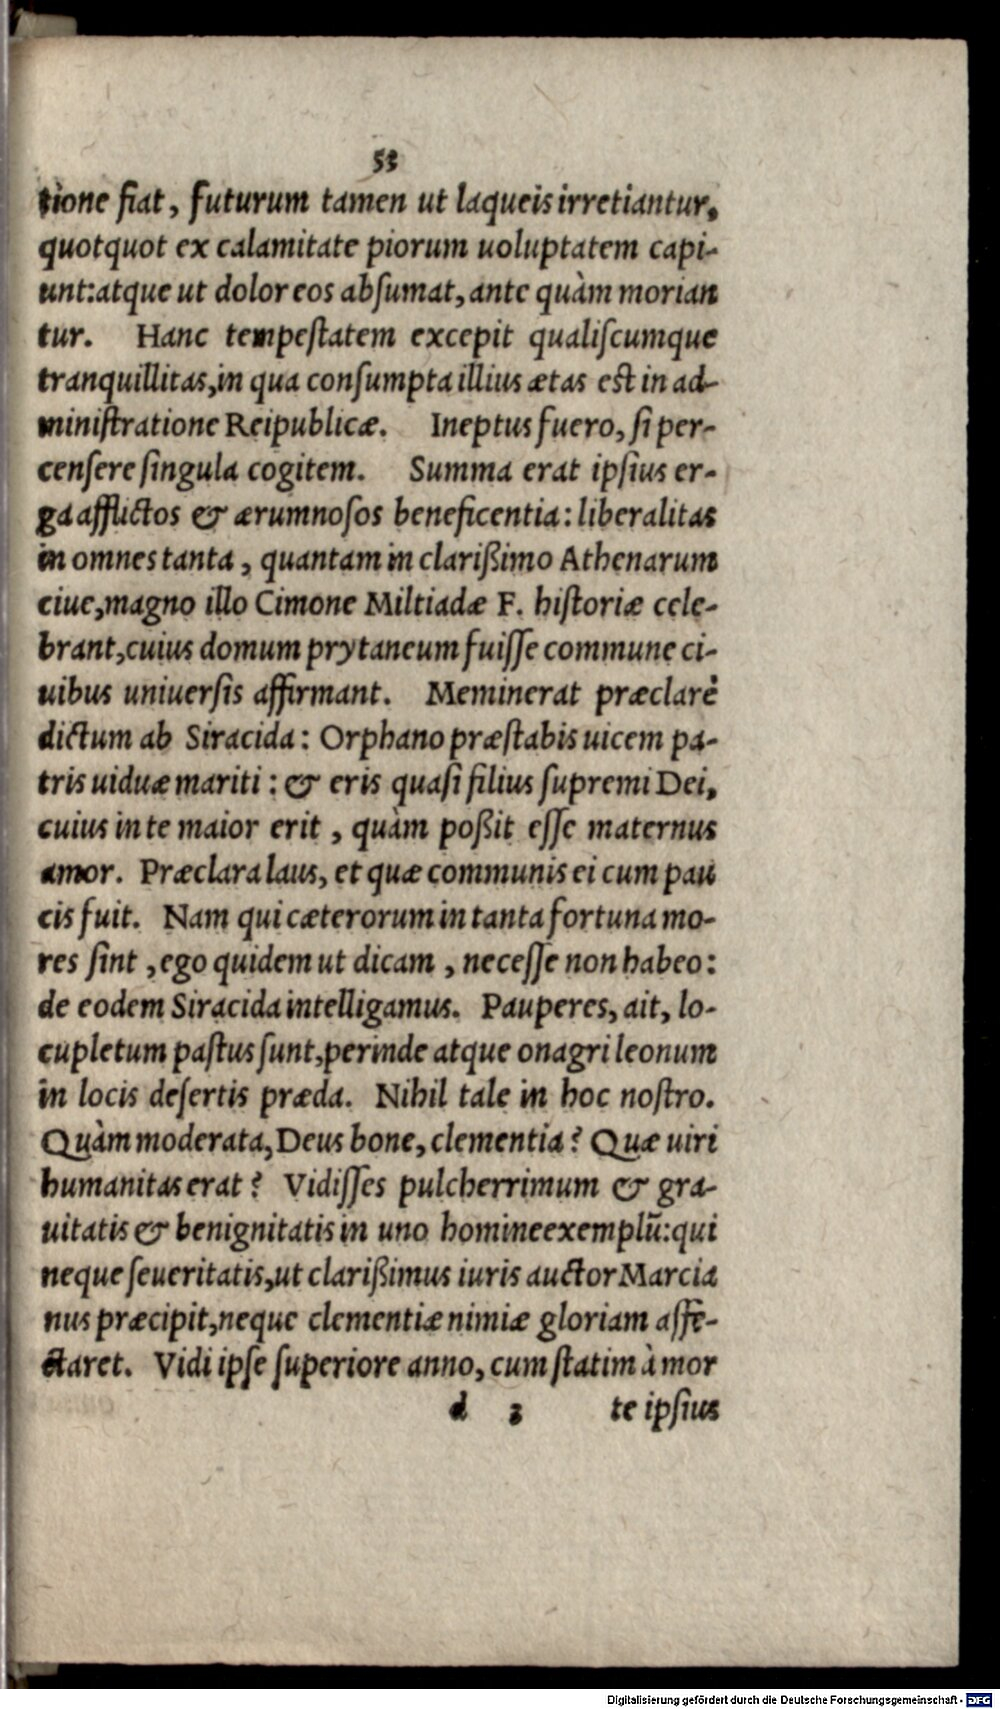 53
tione fiat, futurum tamen ut laqueis irretiantur,
quotquot ex calamitate piorum uoluptatem capi-
unt: atque ut dolor eos absumat, ante quàm morian
tur. Hanc tempestatem excepit qualiscumque
tranquillitas, in qua consumpta illius ætas est in ad-
ministratione Reipublicæ. Ineptus fuero, si per-
censere singula cogitem. Summa erat ipsius er-
ga afflictos & ærumnosos beneficentia: liberalitas
in omnes tanta, quantam in clarißimo Athenarum
ciue, magno illo Cimone Miltiadæ F. historiæ cele-
brant, cuius domum prytaneum fuisse commune ci-
uibus uniuersis affirmant. Meminerat præclarè
dictum ab Siracida: Orphano præstabis uicem pa-
tris uiduæ mariti: & eris quasi filius supremi Dei,
cuius in te maior erit, quàm poßit esse maternus
amor. Præclara laus, et quæ communis ei cum pau
cis fuit. Nam qui cæterorum in tanta fortuna mo-
res sint, ego quidem ut dicam, necesse non habeo:
de eodem Siracida intelligamus. Pauperes, ait, lo-
cupletum pastus sunt, perinde atque onagri leonum
in locis desertis præda. Nihil tale in hoc nostro.
Quàm moderata, Deus bone, clementia? Quæ uiri
humanitas erat? Vidisses pulcherrimum & gra-
uitatis & benignitatis in uno homine exemplũ: qui
neque seueritatis, ut clarißimus iuris auctor Marcia
nus præcipit, neque clementiæ nimiæ gloriam affe-
ctaret. Vidi ipse superiore anno, cum statim à mor
d 3 te ipsius
Digitalisierung gefördert durch die Deutsche Forschungsgemeinschaft - DFG